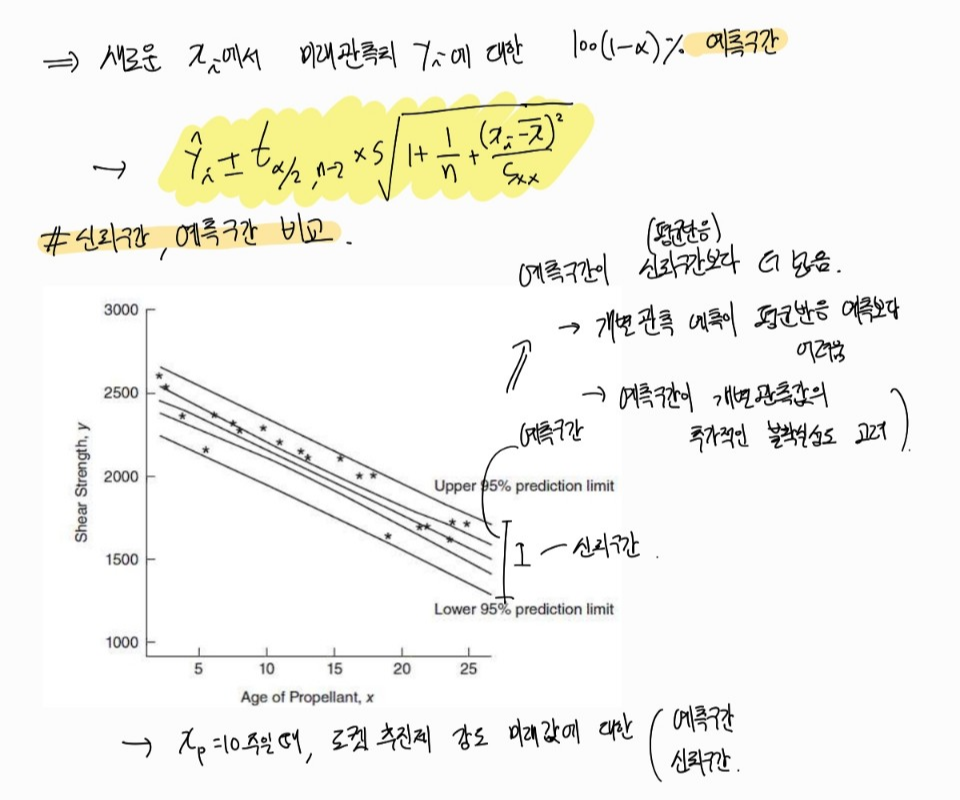 ⇒ 새로운 xᵢ에서 미래관측치 Yᵢ에 대한 100(1-α)% 예측구간
→ Ŷᵢ ± t_{α/2, n-2} × S√(1 + 1/n + (xᵢ - x̄)²/Sxx)
# 신뢰구간, 예측구간 비교.
(평균반응)
예측구간이 신뢰구간보다 더 넓음.
→ 개별 관측 예측이 평균반응 예측보다
어려움
→ 예측구간이 개별관측값의
추가적인 불확실성도 고려
예측구간
신뢰구간.
3000
2500
2000
1500
1000
Shear Strength, y
Upper 95% prediction limit
Lower 95% prediction limit
5 10 15 20 25
Age of Propellant, x
→ xₚ=10주일 때, 로켓 추진제 강도 미래값에 대한 ( 예측구간
신뢰구간.